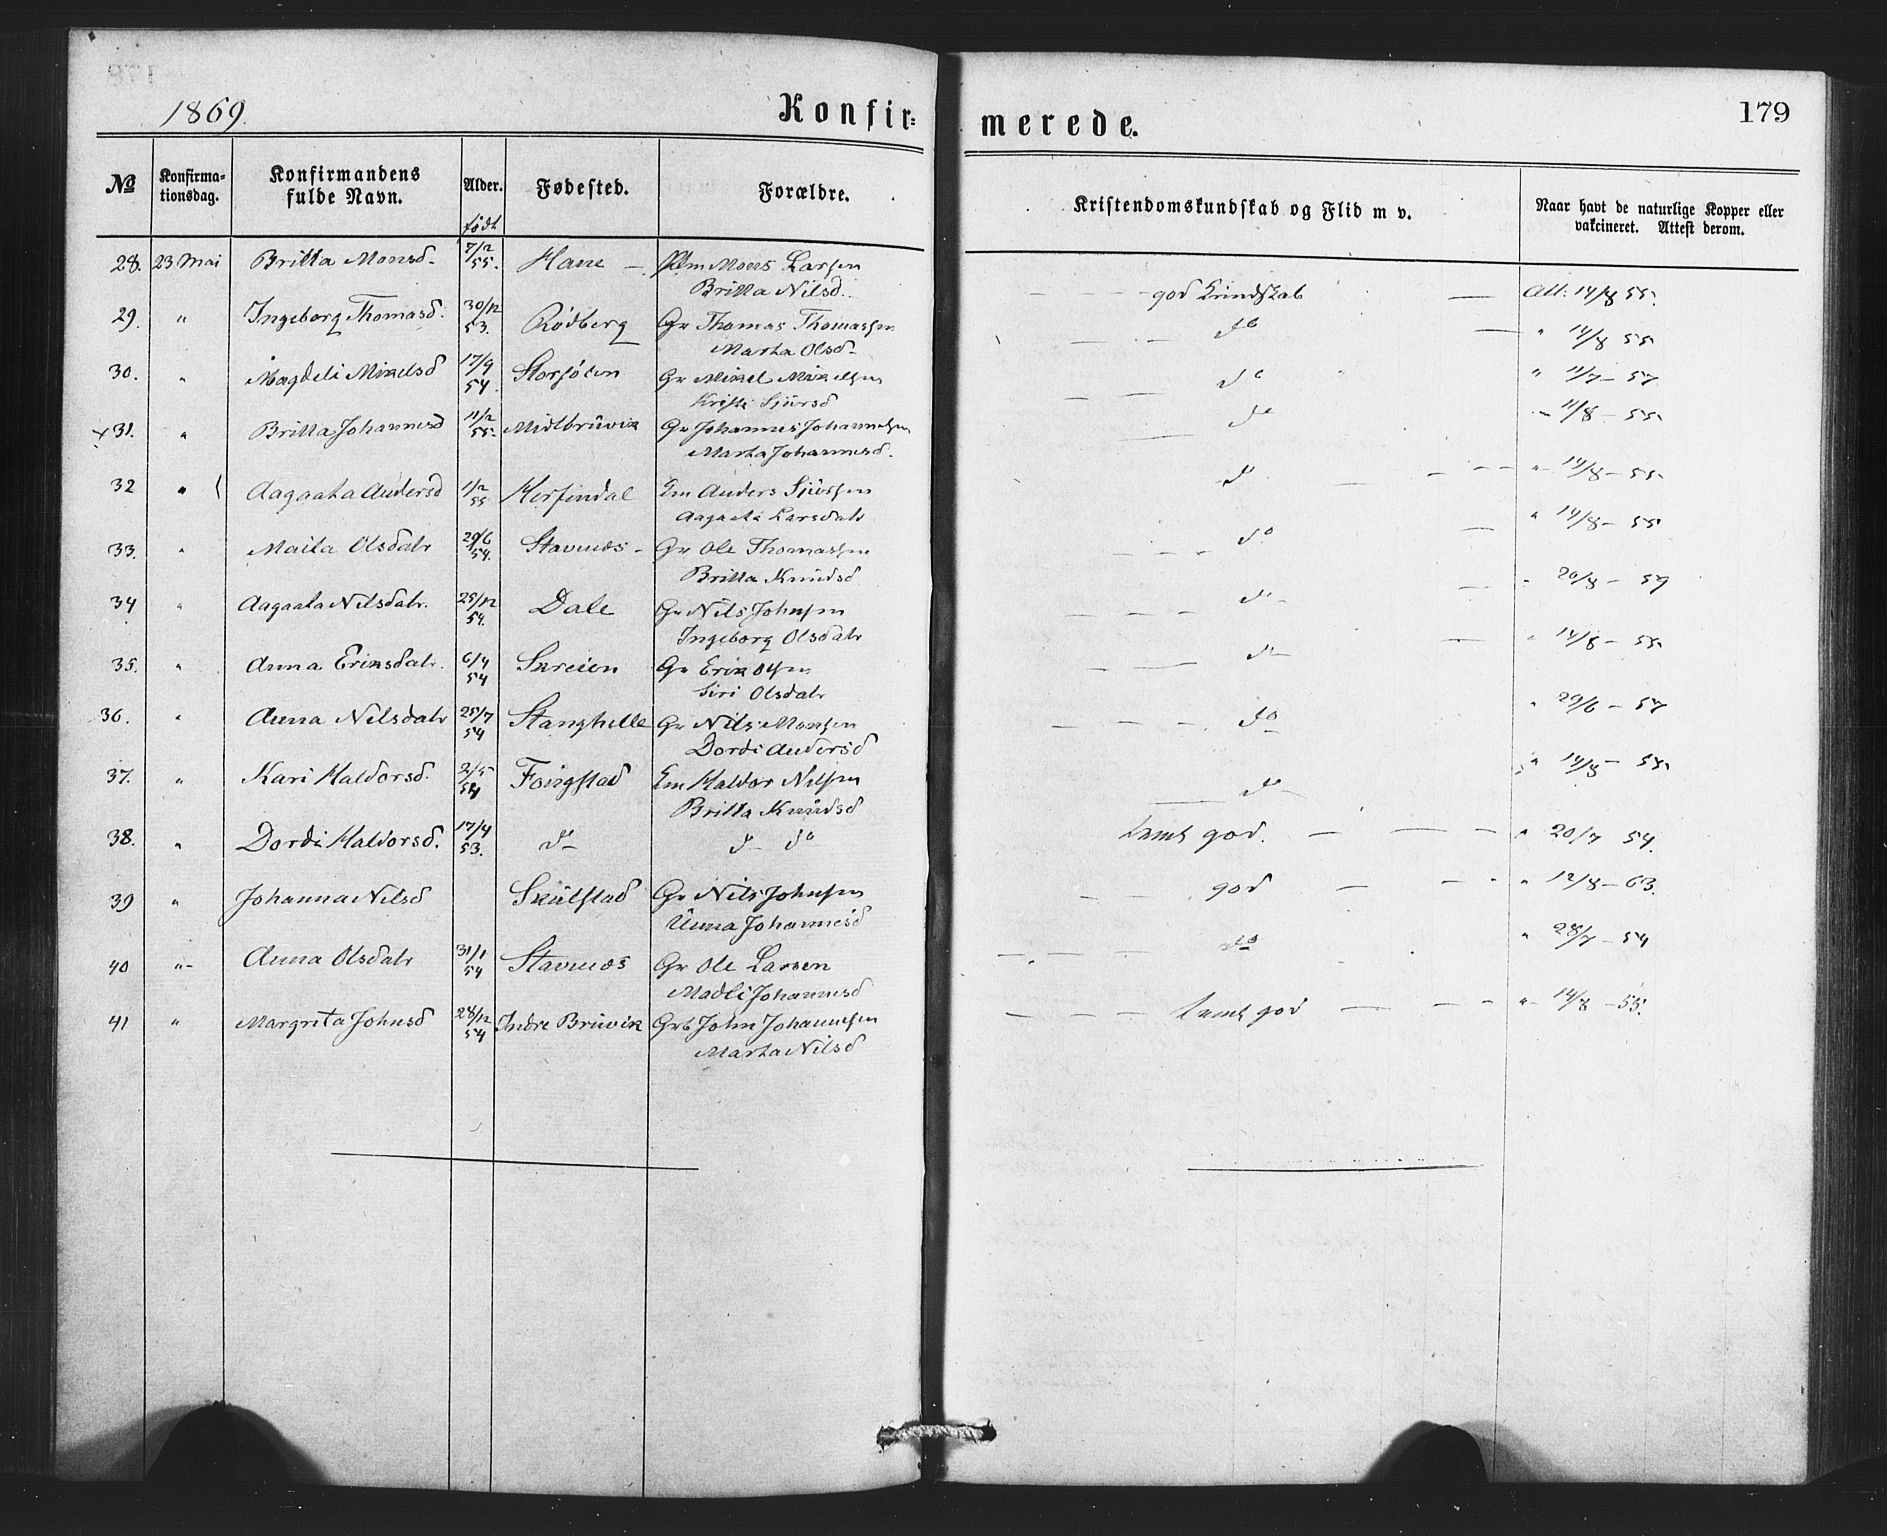 1869.
Konfir=
merede.
179
No
Konfirma=
tionsdag.
Konfirmandens
fulde Navn.
Alder.
født
Fødested.
Forældre.
Kristendomskundskab og Flid m v.
Naar havt de naturlige Kopper eller
vakcineret. Attest derom.
28. 23 Mai Britta Monsd. 7/2 55. Hane Moens Larsen
Britta Nilsd. god Kundskab Att: 14/8 55.
29. " Ingeborg Thomasd. 30/12 53. Rødberg Gr Thomas Thomassen
Martha Olsd. do " 14/8 55
30. " Magdeli Mikelsd 17/9 54. Gr Mikel Mikelsen
Kristi Sjursd do " 11/7 - 57
31. " Britta Johannesd 11/2 55. Midtbruvik Gr Johannes Johannesen
Marta Johannesd. do " 11/8 - 55
32 " Aagaata Andersd 1/2 55 Em Anders Sjursen
Aagaata Larsdatr d " 14/8 - 55
33. " Olsdatr 29/6 54. Stavnæs Gr Ole Thomassen
Britta Knudsd do " 14/8 - 55
34 " Aagaata Nilsdatr. 25/12 54. Dale Gr Nils Johnsen
Ingeborg Olsdatr do " 26/8 - 59
35. " Anna Eriksdatr. 6/4 54 Skreien Gr Erik Olsen
Siri Olsdatr do " 14/8 - 55
36. " Anna Nilsdatr 25/7 54 Stanghelle Gr Nils Monsen
Dordi Andersd do " 29/6 - 57
37. " Kari Haldorsd. 2/5 54 Em Haldor Nilsen
Britta Knudsd do " 14/8 - 55
38. " Dordi Haldorsd. 17/4 53. do do do
teml god. " 20/7 54.
39 " Johanna Nilsd Skulstad Gr Nils Johnsen
Unna Johannesd god " 12/8 - 63.
40 " Anna Olsdatr 31/1 54 Stavnæs Gr Ole Larsen
Madli Johannesd do " 28/7 - 54
41 " Margrita Johnsd 28/12 54 Indre Bruvik Grb John Johannesen
Marta Nilsd teml god " 14/8 - 55.